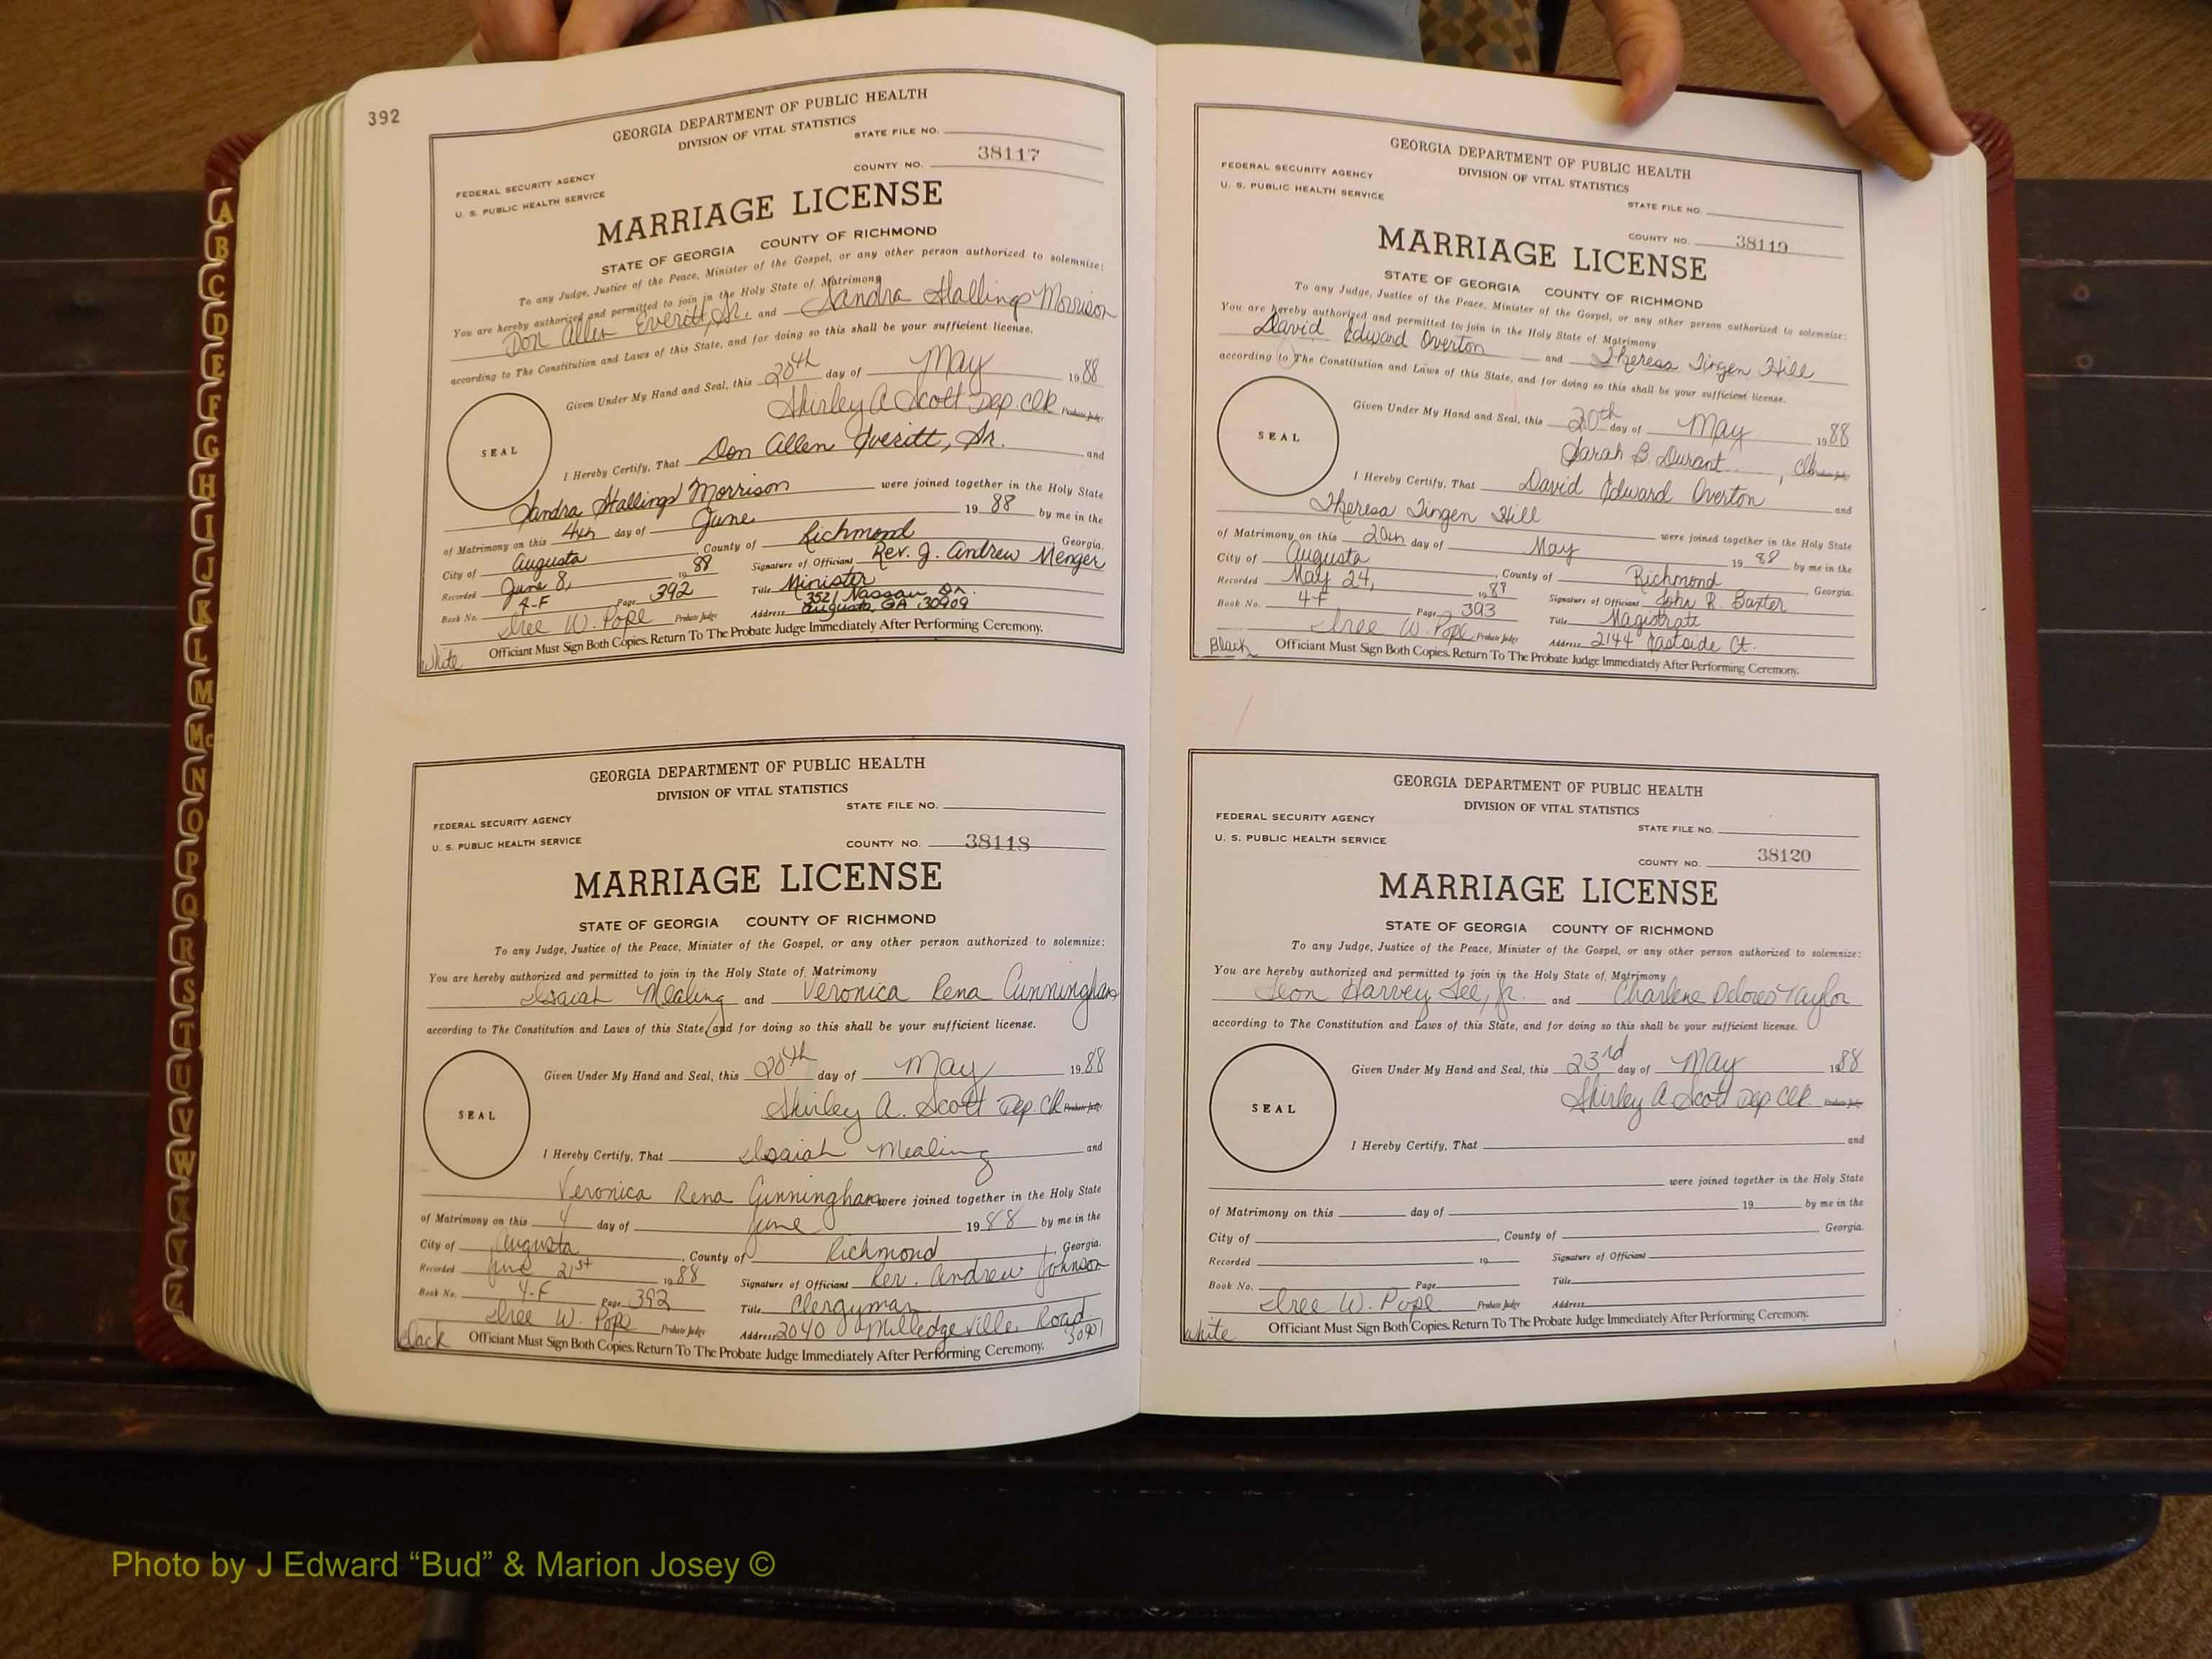 392
GEORGIA DEPARTMENT OF PUBLIC HEALTH
DIVISION OF VITAL STATISTICS
STATE FILE NO.
COUNTY NO. 38117
FEDERAL SECURITY AGENCY
U. S. PUBLIC HEALTH SERVICE
MARRIAGE LICENSE
STATE OF GEORGIA COUNTY OF RICHMOND
To any Judge, Justice of the Peace, Minister of the Gospel, or any other person authorized to solemnize:
You are hereby authorized and permitted to join in the Holy State of Matrimony
Don Allen Everitt, Sr. and Sandra Stallings Morrison
according to The Constitution and Laws of this State, and for doing so this shall be your sufficient license.
Given Under My Hand and Seal, this 20th day of May 1988
Shirley A Scott Dep. Clk Probate Judge
SEAL
I Hereby Certify, That Don Allen Everitt, Sr. and
Sandra Stallings Morrison were joined together in the Holy State
of Matrimony on this 4th day of June 19 88 by me in the
City of Augusta, County of Richmond Georgia.
Recorded June 8, 19 88 Signature of Officiant Rev. J. Andrew Menger
Book No. 4-F Page 392 Title Minister
Address 3521 Nassau Dr. Augusta, GA 30909
Iree W. Pope Probate Judge
Officiant Must Sign Both Copies. Return To The Probate Judge Immediately After Performing Ceremony.
White
GEORGIA DEPARTMENT OF PUBLIC HEALTH
DIVISION OF VITAL STATISTICS
STATE FILE NO.
FEDERAL SECURITY AGENCY
U. S. PUBLIC HEALTH SERVICE
COUNTY NO. 38118
MARRIAGE LICENSE
STATE OF GEORGIA COUNTY OF RICHMOND
To any Judge, Justice of the Peace, Minister of the Gospel, or any other person authorized to solemnize:
You are hereby authorized and permitted to join in the Holy State of Matrimony
Isaiah Mealing and Veronica Rena Cunningham
according to The Constitution and Laws of this State, and for doing so this shall be your sufficient license.
Given Under My Hand and Seal, this 20th day of May 1988
Shirley A. Scott Dep. Clk Probate Judge
SEAL
I Hereby Certify, That Isaiah Mealing and
Veronica Rena Cunningham were joined together in the Holy State
of Matrimony on this 4 day of June 1988 by me in the
City of Augusta, County of Richmond, Georgia.
Recorded June 21st 1988 Signature of Officiant Rev. Andrew Johnson
Book No. 4-F Page 392 Title Clergyman
Iree W. Pope Probate Judge Address 2040 Milledgeville Road 30901
Black Officiant Must Sign Both Copies. Return To The Probate Judge Immediately After Performing Ceremony.
GEORGIA DEPARTMENT OF PUBLIC HEALTH
DIVISION OF VITAL STATISTICS
FEDERAL SECURITY AGENCY
U. S. PUBLIC HEALTH SERVICE
STATE FILE NO.
COUNTY NO. 38119
MARRIAGE LICENSE
STATE OF GEORGIA COUNTY OF RICHMOND
To any Judge, Justice of the Peace, Minister of the Gospel, or any other person authorized to solemnize:
You are hereby authorized and permitted to join in the Holy State of Matrimony
David Edward Overton and Theresa Tingen Hill
according to The Constitution and Laws of this State, and for doing so this shall be your sufficient license.
Given Under My Hand and Seal, this 20th day of May 1988
Sarah B. Durant, Clk Probate Judge
SEAL
I Hereby Certify, That David Edward Overton and
Theresa Tingen Hill were joined together in the Holy State
of Matrimony on this 20th day of May 19 88 by me in the
City of Augusta, County of Richmond, Georgia.
Recorded May 24, 1988 Signature of Officiant John R. Baxter
Book No. 4-F Page 393 Title Magistrate
Iree W. Pope Probate Judge Address 2144 Eastside Ct.
Black Officiant Must Sign Both Copies. Return To The Probate Judge Immediately After Performing Ceremony.
GEORGIA DEPARTMENT OF PUBLIC HEALTH
DIVISION OF VITAL STATISTICS
FEDERAL SECURITY AGENCY
U. S. PUBLIC HEALTH SERVICE
STATE FILE NO.
COUNTY NO. 38120
MARRIAGE LICENSE
STATE OF GEORGIA COUNTY OF RICHMOND
To any Judge, Justice of the Peace, Minister of the Gospel, or any other person authorized to solemnize:
You are hereby authorized and permitted to join in the Holy State of Matrimony
Leon Harvey Lee, Jr. and Charlene Delores Taylor
according to The Constitution and Laws of this State, and for doing so this shall be your sufficient license.
Given Under My Hand and Seal, this 23rd day of May 1988
Shirley A Scott Dep Clk Probate Judge
SEAL
I Hereby Certify, That and
were joined together in the Holy State
of Matrimony on this day of 19 by me in the
City of , County of , Georgia.
Recorded 19 Signature of Officiant
Book No. Page Title
Iree W. Pope Probate Judge Address
White Officiant Must Sign Both Copies. Return To The Probate Judge Immediately After Performing Ceremony.
A
B
C
D
E
F
G
H
I
J
K
L
M
Mc
N
O
P
Q
R
S
T
U
V
W
X
Y
Z
Photo by J Edward “Bud” & Marion Josey ©